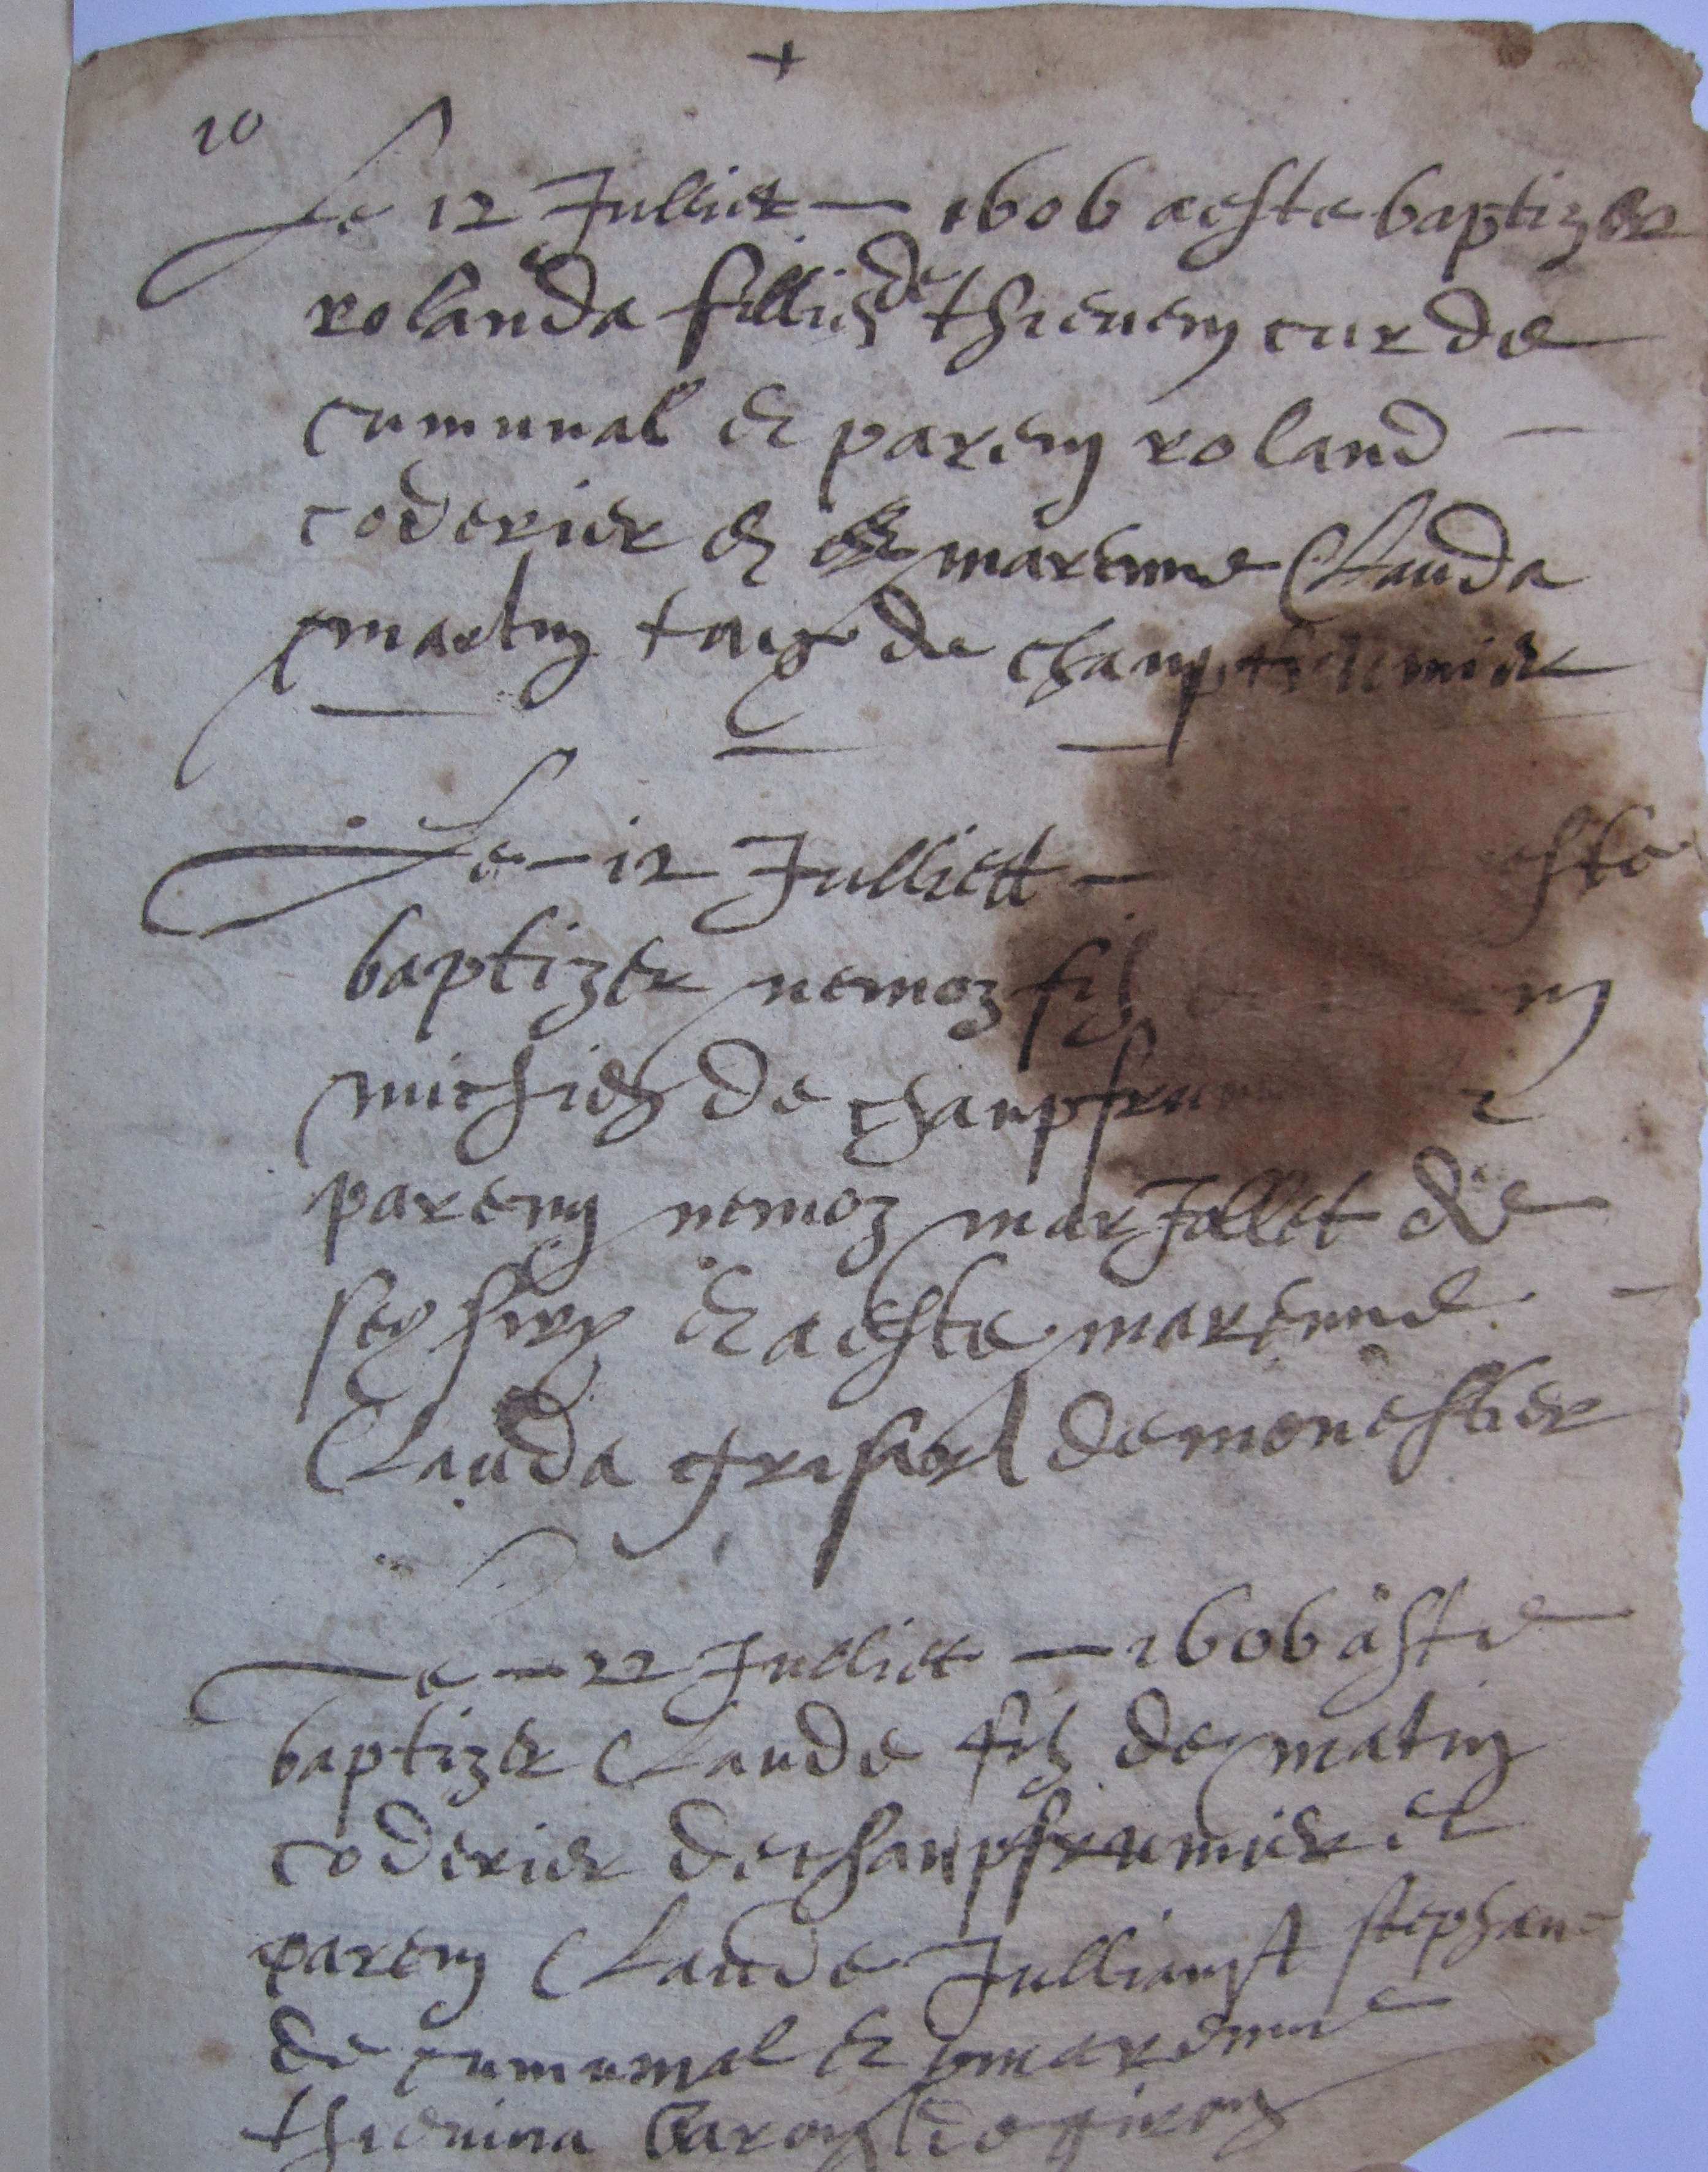 +
10
Le 12 Julliet — 1606 a este baptizer
rolanda fillie de thievem cur de
cumunal et parem roland —
coderier et marenne Clauda
martin tous de champfrumier
Le – 12 Julliett — este
baptizer nemoz filz
michiel de champfru
parem nemoz marJollet de
et a este marenne
Clauda de monestier
Le — 22 Julliet — 1606 aste
baptizer Claude filz de matin
coderier de chanpfrumier et
parem Claude Julliam stephan
de cumunal et marenne
thievina de giron